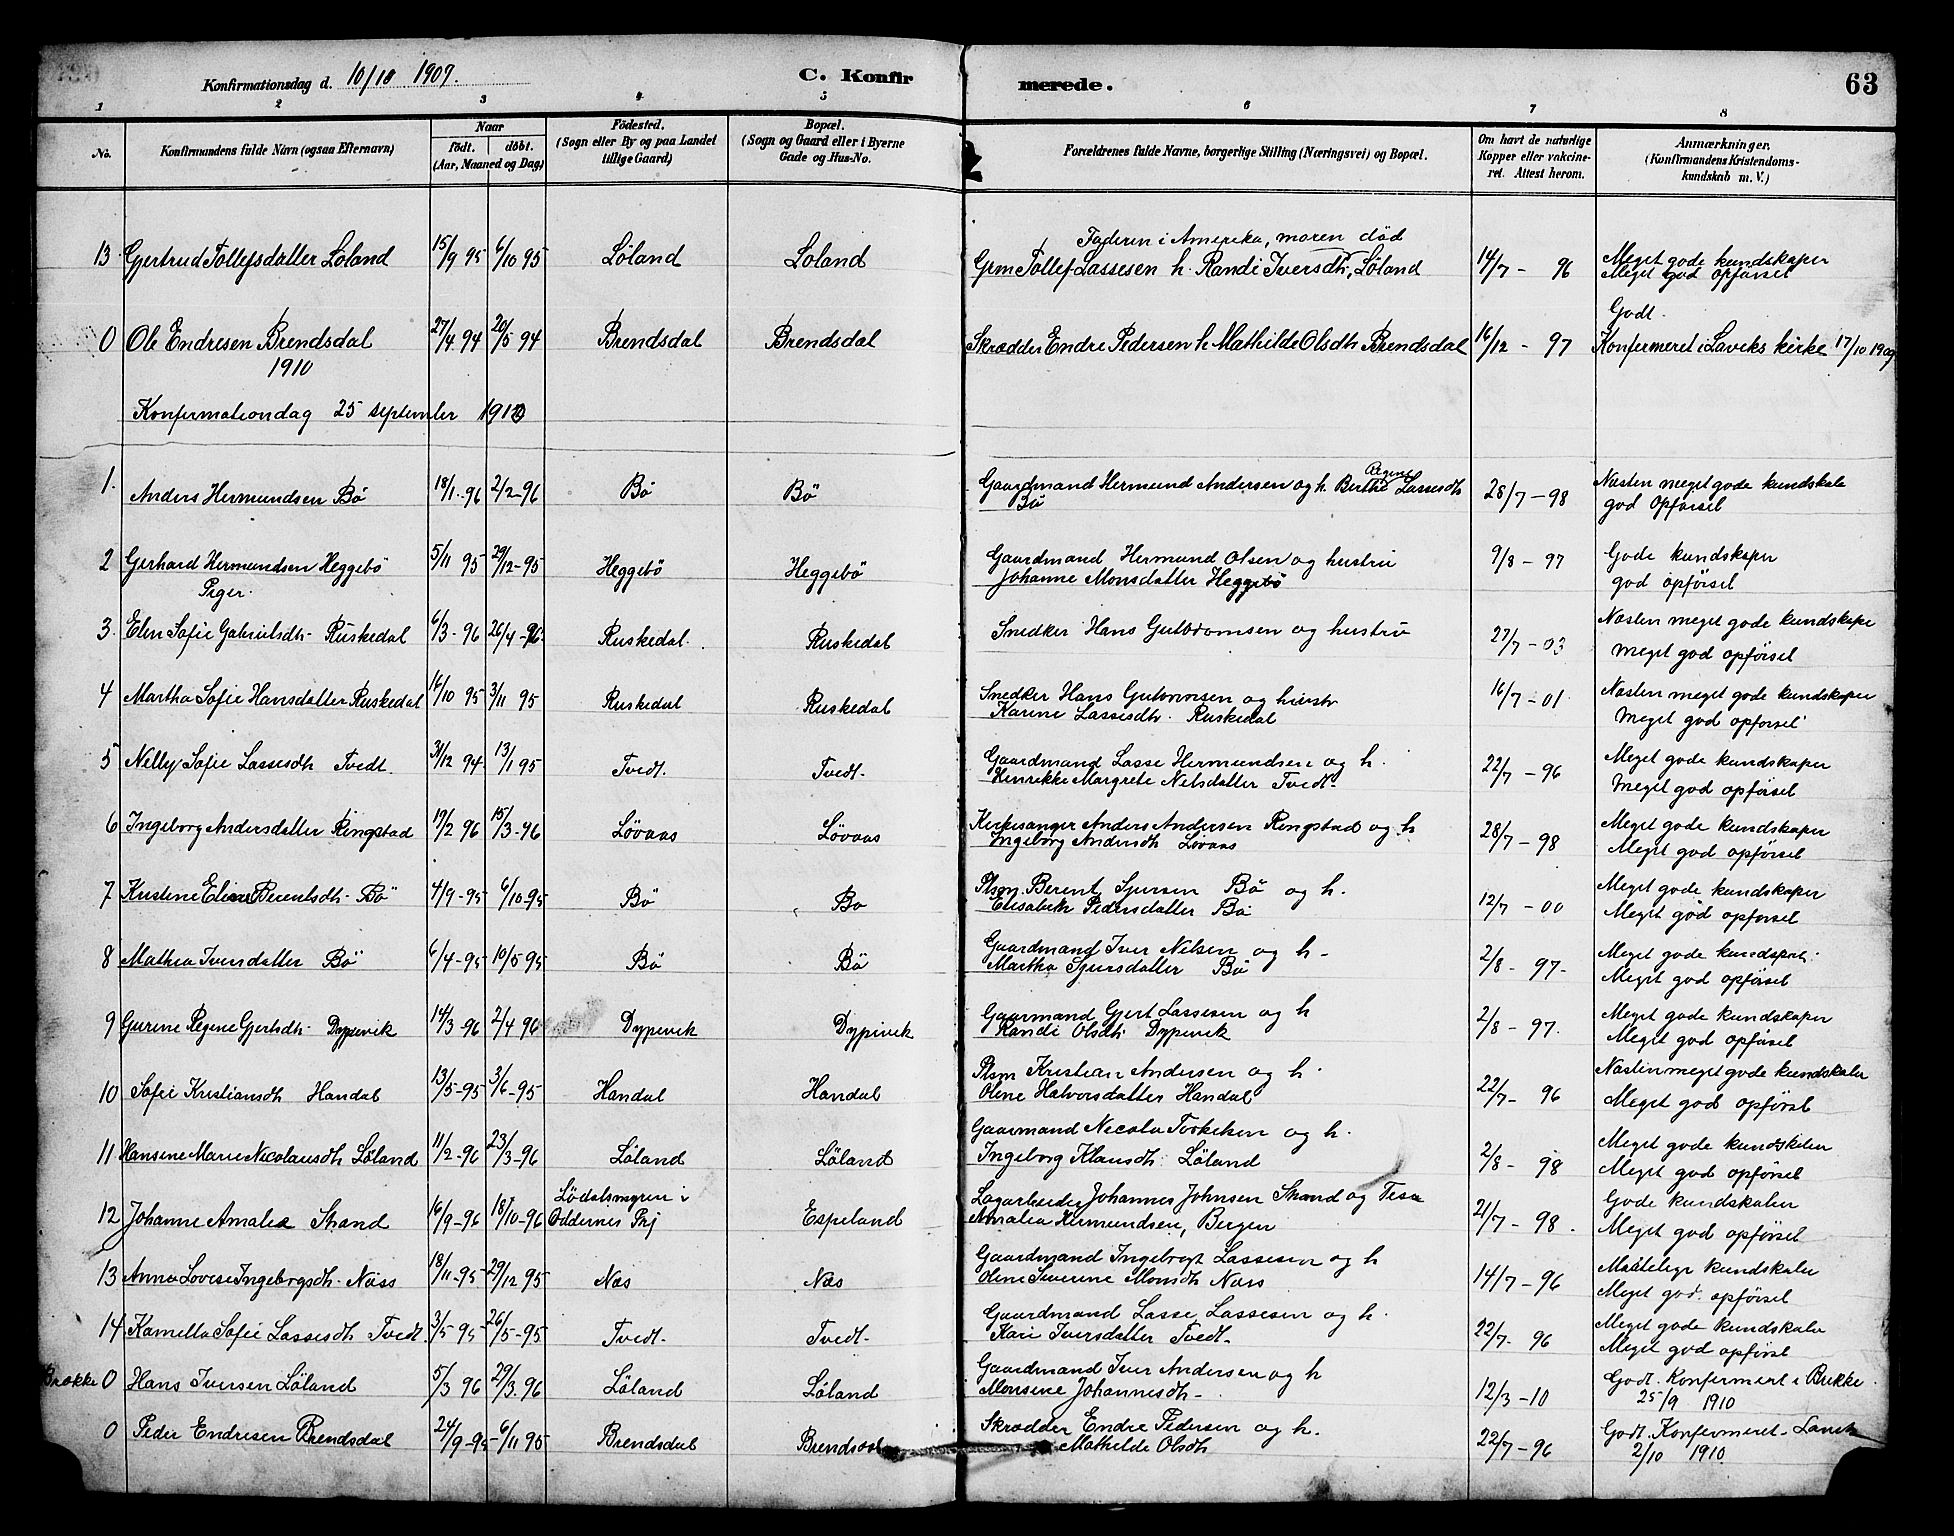 Konfirmationsdag d. 10/10 1909. C. Konfirmerede. 63
1 2 3 4 5 6 7 8
No. Konfirmandens fulde Navn (ogsaa Efternavn) Naar født. døbt. (Aar, Maaned og Dag) Fødested. (Sogn eller By og paa Landet tillige Gaard) Bopæl. (Sogn og Gaard eller i Byerne Gade og Hus-No. Forældrenes fulde Navne, borgerlige Stilling (Næringsvei) og Bopæl. Om havt de naturlige Kopper eller vakcineret. Attest herom. Anmærkninger. (Konfirmandens Kristendomskundskab m. V.)
Faderen i Amerika, moren död
13 Gjertrud Tollefsdatter Löland 15/9 95 6/10 95 Löland Löland Grm Tollef Lassesen h. Randi Iversdtr, Löland 14/7 - 96 Meget gode kundskaper
Meget god opförsel
Godt.
0 Ole Endresen Brendsdal 27/4 94 20/5 94 Brendsdal Brendsdal Skrædder Endre Pedersen h Mathilde Olsdtr Brendsdal 16/12 - 97 Konfermeret i Laviks kirke 17/10 1909
1910
Konfermationdag 25 september 1910
1. Anders Hermundsen Bö 18/1-96 2/2-96 Bö Bö Gaardmand Hermund Andersen og h. Berthe Regine Lassesdtr 28/7-98 Næsten meget gode kundskale
Bö god Opförsel
2 Gerhard Hermundsen Heggebö 5/11 95 29/12-95 Heggebö Heggebö Gaardmand Hermund Olsen og hustru 9/8 - 97 Gode kundskaper
Johanne Monsdatter Heggebö god opförsel
Piger.
3. Elen Sofie Gabrielsdtr Ruskedal 6/3-96 26/4-96 Ruskedal. Ruskedal Snedker Hans Guttormsen og hustru 27/7-03 Næsten meget gode kundskape
meget god opförsel
4 Martha Sofie Hansdatter Ruskedal 14/10 95 3/11 95 Ruskedal Ruskedal Snedker Hans Guttormsen og hustr 16/7-01 Næsten meget gode kundskaper
Karine Lassesdtr. Ruskedal Meget god opförsel
5 Nelly Sofie Lassesdtr Tvedt 31/12 94 13/1 95 Tvedt. Tvedt. Gaardmand Lasse Hermundsen og h. 22/7-96 Meget gode kundskaper
Henrikke Margrete Nilsdatter Tvedt- Meget god opförsel
6 Ingeborg Andersdatter Ringstad 19/2 96 15/3-96 Lövaas Lövaas Kirkesanger Anders Andersen Ringstad og h 28/7-98 Meget gode kundskaper
Ingeborg Andersdtr Lövaas Meget god opförsel
7 Kristine Eline Berentsdtr- Bö 4/9-95 6/10-95 Bö Bö Plsm. Berent Sjursen Bö og h. 12/7-00 Meget gode kundskaper
Elisabeth Pedersdatter Bö Meget god opförsel
8 Mathea Iversdatter Bö 6/4-95 19/5-95 Bö Bö Gaardmand Iver Nilsen og h- 2/8-97- Meget gode
Martha Sjursdatter Bö Meget god opförsel
9 Gurine Regine Gjertsdtr- Dypevik 14/3-96 2/4 96 Dypevik Dypivik Gaarmand Gjert Lassesen og h 2/8-97. Meget gode kundskaper
Randi Olsdtr Dypevik Meget god opförsel
10 Sofie Kristiansdtr Handal 13/5-95 3/6-95 Handal Handal Plsm Kristian Andersen og h. 22/7- 96 Næsten meget gode kundskaler
Oline Halvorsdatter Handal Meget god opförsel
11 Hansine Marie Nicolausdtr Löland 11/2-96 23/3-96 Löland Löland Gaarmand Nicola Torkelsen og h. 2/8- 98 Meget gode kundskaler
Ingeborg Klausdtr Löland Meget god opförsel
12 Johanne Amalia Strand 16/9-96 18/10-96 Lödalsmyren i Oddernes Pgj Espeland Lagarbeider Johannes Johnsen Strand og 21/7-98. Gode kundskaler
Amalia Hermundsen, Bergen Meget god opförsel
13 Anna Lovise Ingebrgsdtr- Næss 18/11-95 29/12 95 Næs Næs Gaardmand Ingebregt Lassesen og h 14/7-96 Maatelige kundskaler
Oline Severine Monsdtr Næss Meget god. opförsel
14 Kamilla Sofie Lassesdtr Tvedt. 3/5-95- 26/5-95 Tvedt- Tvedt- Gaardmand Lasse Lassesen og h. 22/7- 96 Meget gode kundskaler
Kari Iversdatter Tvedt- Meget god opförsel
Brække 0 Hans Iversen Löland 5/3 96 29/3.96 Löland Löland Gaardmand Iver Andersen og h 12/3-10 Godt. Konfermert i Brekke
Monsine Johannesdtr- 25/9 1910
0 Peder Endresen Brendsdal 24/9-95 6/11 95 Brendsdal Brendsdal Skrædder Endre Pedersen og h. 22/7-96 Godt. Konfermeret- Lavik
Mathilde Olsdtr 2/10 1910